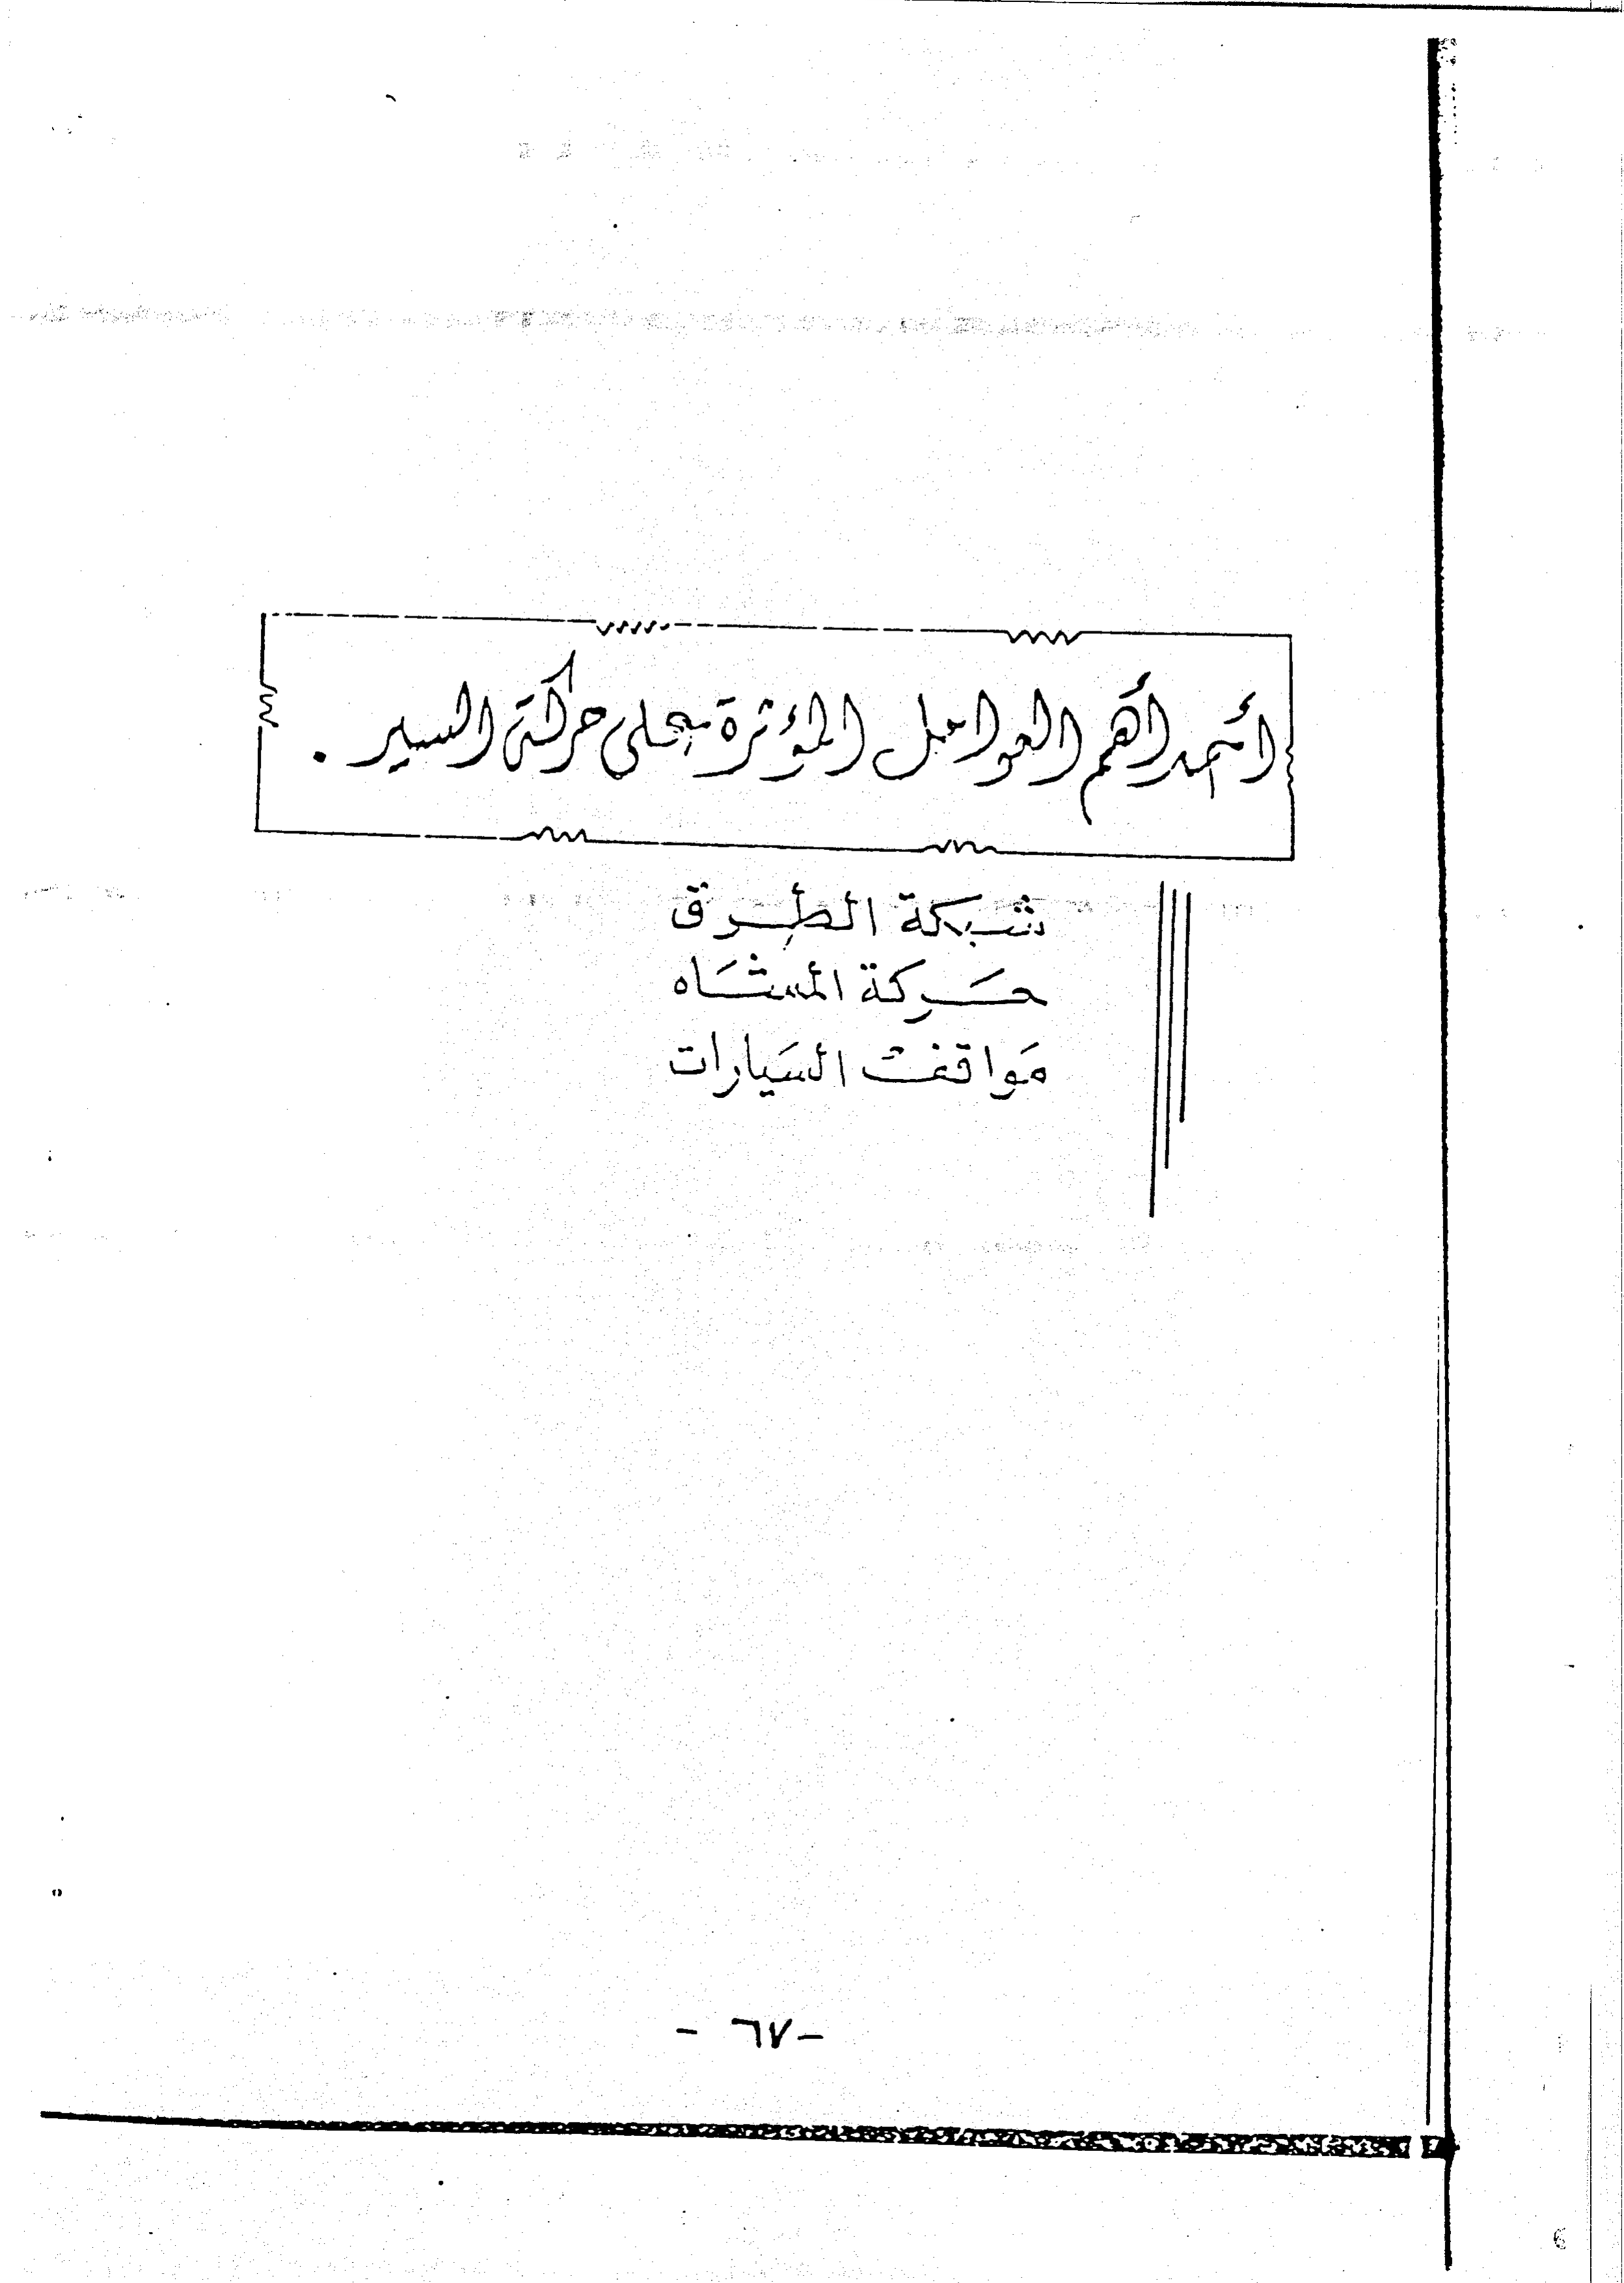 أحد أهم العوامل المؤثرة على حركة السير .
شبكة الطرق
حَركة المشَاه
مَواقف السَيارات
- ٦٧ -